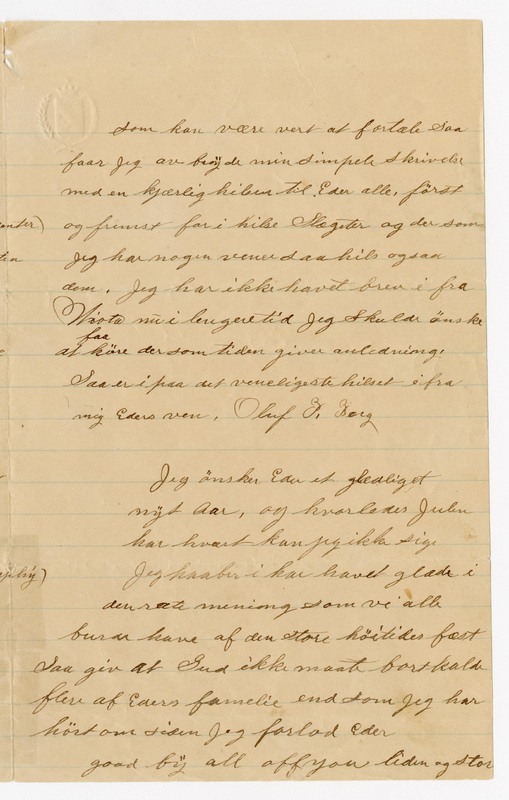 som kan være vert at fortæle saa
faar Jeg av bryde min simpele skrivelse
med en kjærlig hilsen til Eder alle, först
og fremst faar i hilse Slægter og der som
Jeg har nogen vener saa hils ogsaa
dem. Jeg har ikke havet brev i fra
nu i lengere tid Jeg skulde önske
faa
at höre der som tiden giver anledning.
Saa er i paa det veneligeste hilset ifra
mig Eders ven. Oluf Berg
Jeg önsker Eder et glædligt
nyt Aar, og hvorledes Julen
har hvært kan jeg ikke sige
Jeg haaber i har havet glæde i
den rete mening som vi alle
burde have af den store höitides fæst
Saa giv at Gud ikke maate bortkalde
flere af Eders famelie end som Jeg har
hört om sisen Jeg forlod Eder
good by all off you liden og stor